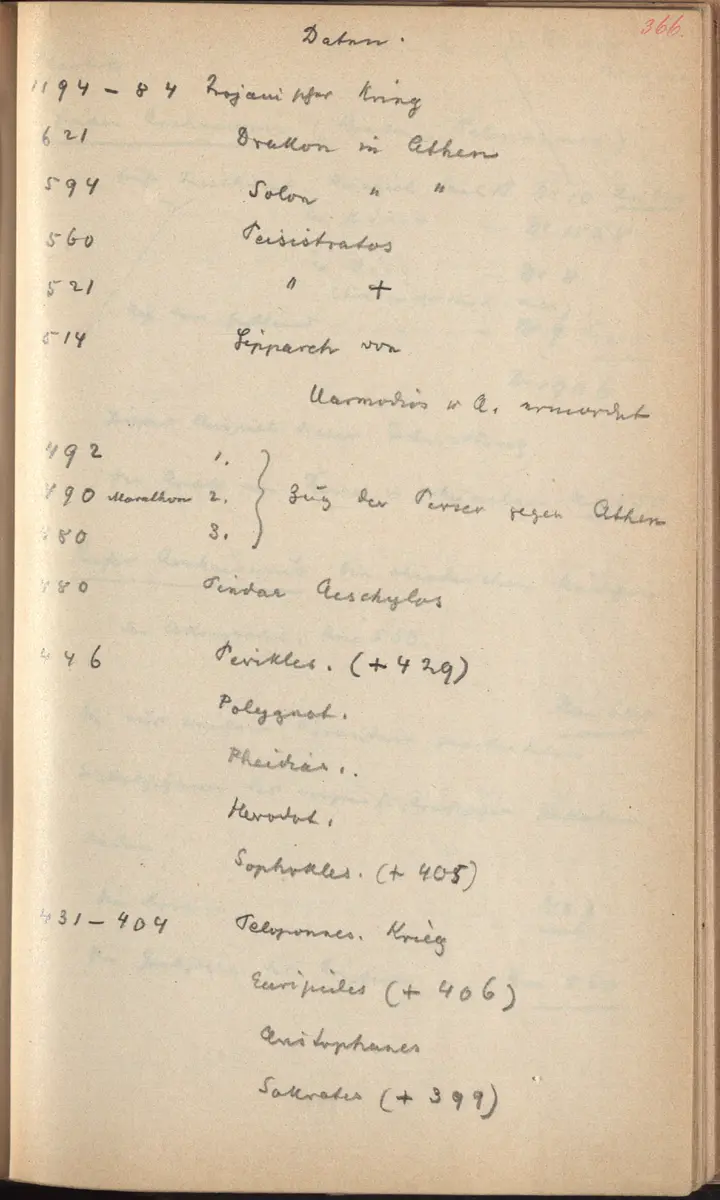 366.
Daten.
1194 – 84 Trojanischer Krieg
621 Drakon in Athen
594 Solon " "
560 Peisistratos
521 " +
514 Hipparch von
Harmodios u A. ermordet
492 1.
490 Marathon 2. } Zug der Perser gegen Athen
480 3.
480 Pindar Aeschylos
446 Perikles. (+ 429)
Polygnot.
Pheidias..
Herodot.
Sophokles. (+ 405)
431 – 404 Peloponnes. Krieg
Euripides (+ 406)
Aristophanes
Sokrates (+ 399)